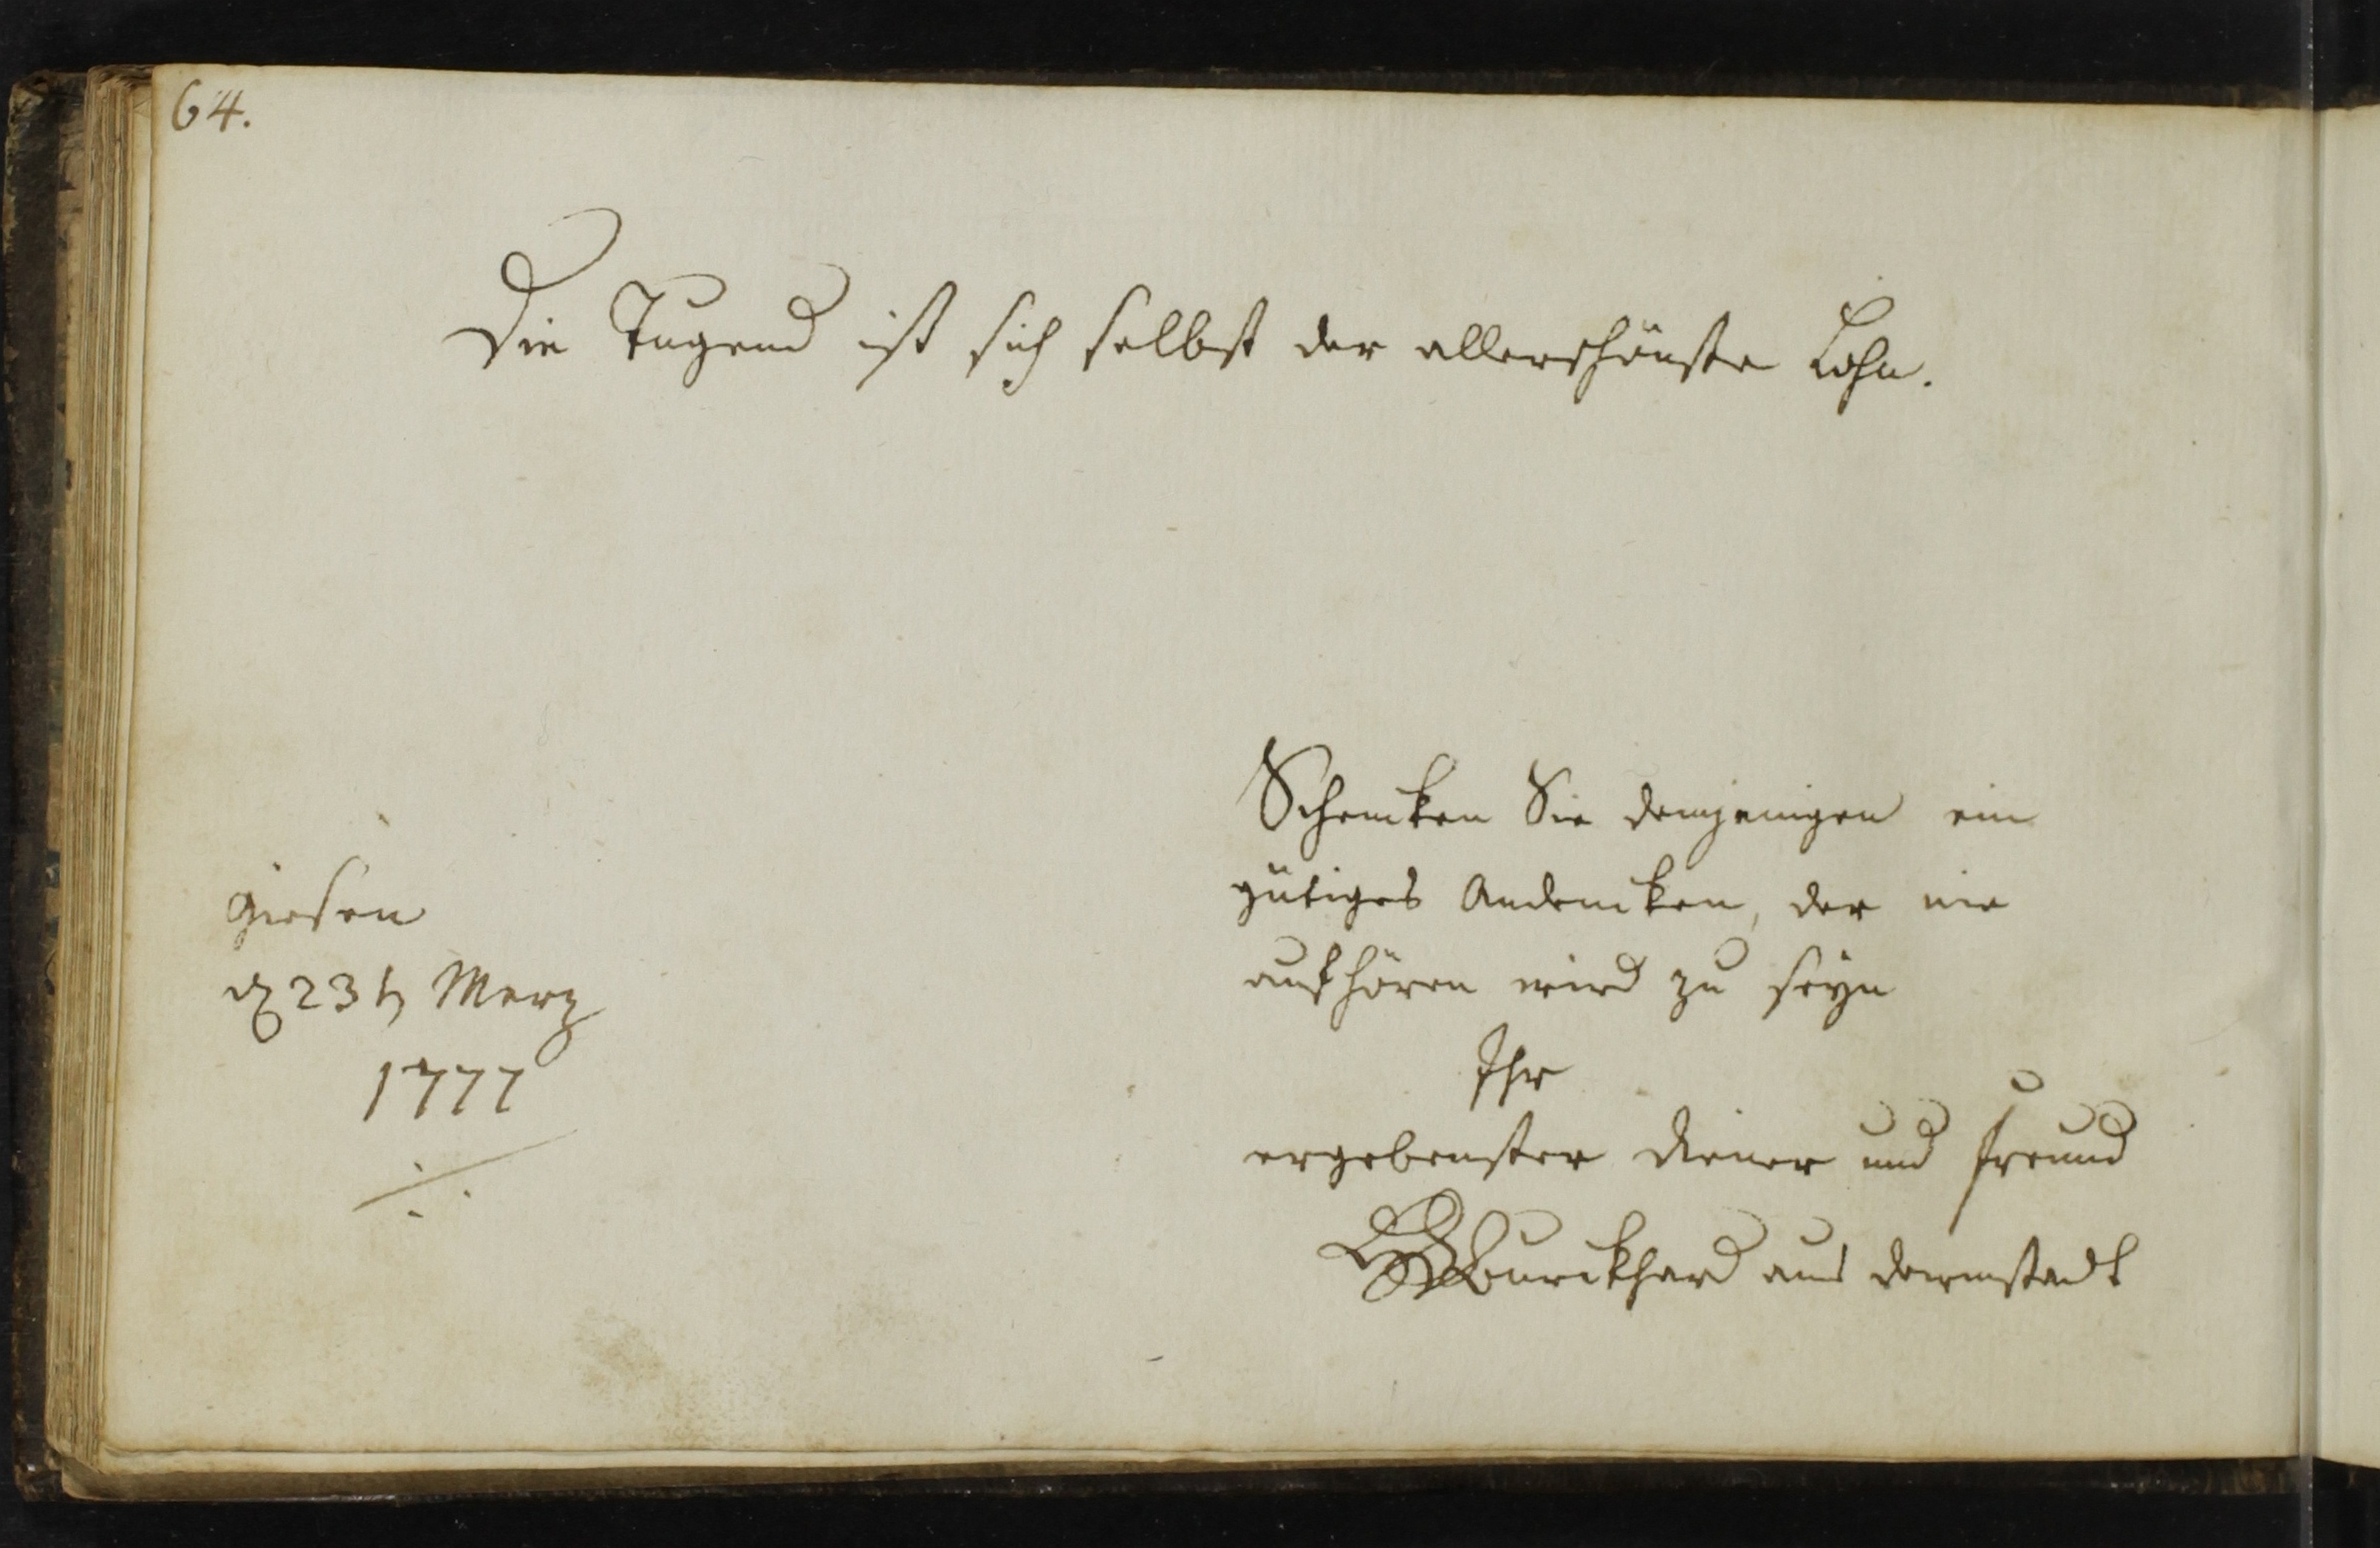 64.
Die Tugend ist sich selbst der allerschönste Lohn.
Schencken Sie demjenigen ein
gütiges Andencken, der nie
aufhören wird zu seyn
Ihr
ergebenster Diener und Freund
Burckhard aus Darmstadt
Giesen
d 23t Merz
1777